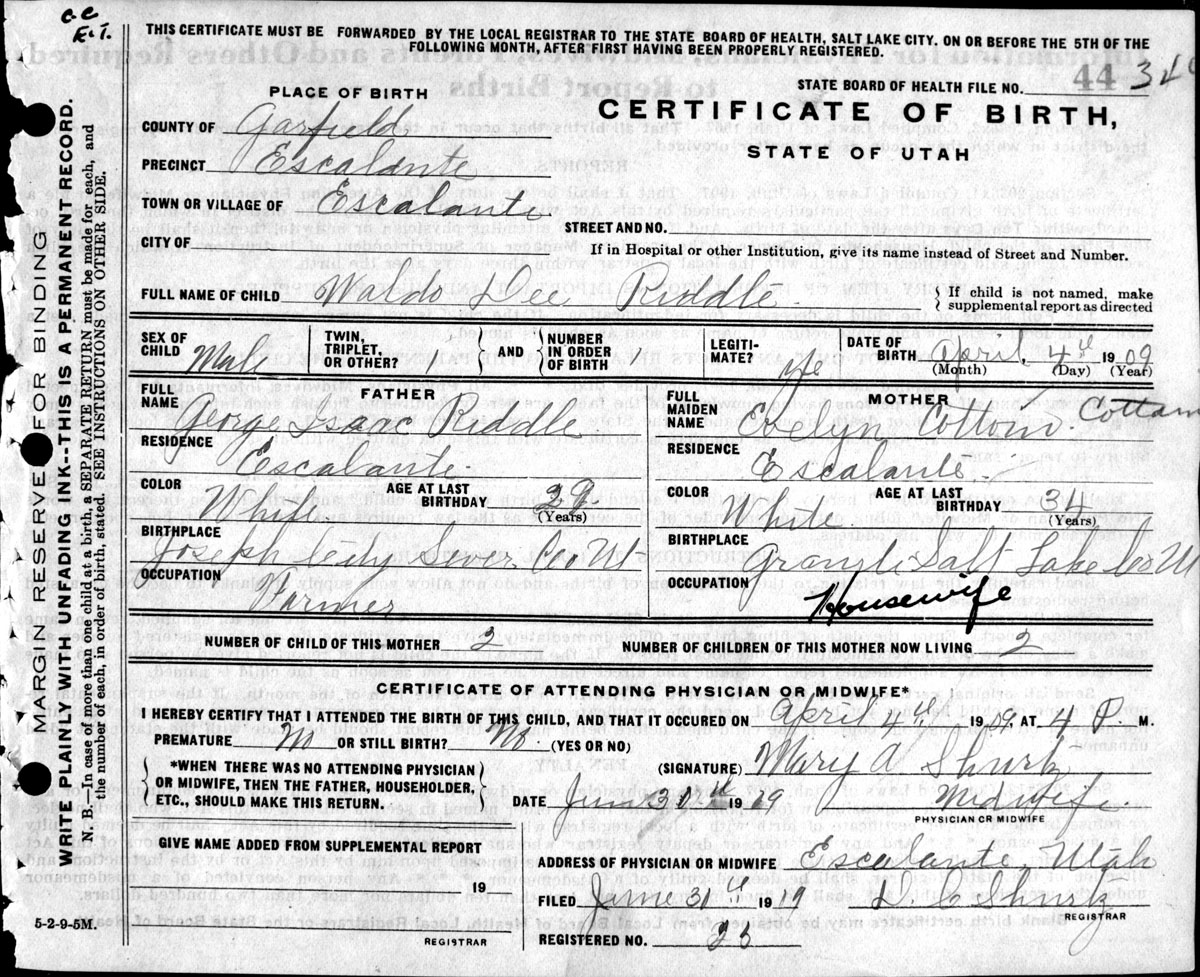 C.C.
E.T.
THIS CERTIFICATE MUST BE FORWARDED BY THE LOCAL REGISTRAR TO THE STATE BOARD OF HEALTH, SALT LAKE CITY. ON OR BEFORE THE 5TH OF THE
FOLLOWING MONTH, AFTER FIRST HAVING BEEN PROPERLY REGISTERED.
STATE BOARD OF HEALTH FILE NO. 44
PLACE OF BIRTH
CERTIFICATE OF BIRTH,
STATE OF UTAH
COUNTY OF Garfield
PRECINCT Escalante
TOWN OR VILLAGE OF Escalante
STREET AND NO.
CITY OF
If in Hospital or other Institution, give its name instead of Street and Number.
FULL NAME OF CHILD Waldo Dee Riddle
{ If child is not named, make
supplemental report as directed
SEX OF CHILD Male
TWIN, TRIPLET, OR OTHER?
{ AND }
NUMBER IN ORDER OF BIRTH
LEGITI- MATE? ye
DATE OF BIRTH April, 4th 1909
(Month) (Day) (Year)
FATHER
FULL NAME George Isaac Riddle
RESIDENCE Escalante
COLOR White AGE AT LAST BIRTHDAY 39 (Years)
BIRTHPLACE Joseph City Sever Co Ut
OCCUPATION Farmer
MOTHER
FULL MAIDEN NAME Evelyn Cottom. Cottam
RESIDENCE Escalante
COLOR White AGE AT LAST BIRTHDAY 34 (Years)
BIRTHPLACE Salt Lake Co Ut
OCCUPATION Housewife
NUMBER OF CHILD OF THIS MOTHER 2 NUMBER OF CHILDREN OF THIS MOTHER NOW LIVING 2
CERTIFICATE OF ATTENDING PHYSICIAN OR MIDWIFE*
I HEREBY CERTIFY THAT I ATTENDED THE BIRTH OF THIS CHILD, AND THAT IT OCCURED ON April 4th, 1909 AT 4 P. M.
PREMATURE No OR STILL BIRTH? No. (YES OR NO)
(SIGNATURE) Mary A Shurtz
{ *WHEN THERE WAS NO ATTENDING PHYSICIAN
OR MIDWIFE, THEN THE FATHER, HOUSEHOLDER,
ETC., SHOULD MAKE THIS RETURN. }
DATE June 31th 1919 Midwife.
PHYSICIAN OR MIDWIFE
GIVE NAME ADDED FROM SUPPLEMENTAL REPORT
19
REGISTRAR
ADDRESS OF PHYSICIAN OR MIDWIFE Escalante Utah
FILED June 31th 1919 Shurtz
REGISTRAR
REGISTERED NO.
5-2-9-5M.
MARGIN RESERVED FOR BINDING
WRITE PLAINLY WITH UNFADING INK--THIS IS A PERMANENT RECORD.
N. B.—In case of more than one child at a birth, a SEPARATE RETURN must be made for each, and
the number of each, in order of birth, stated. SEE INSTRUCTIONS ON OTHER SIDE.